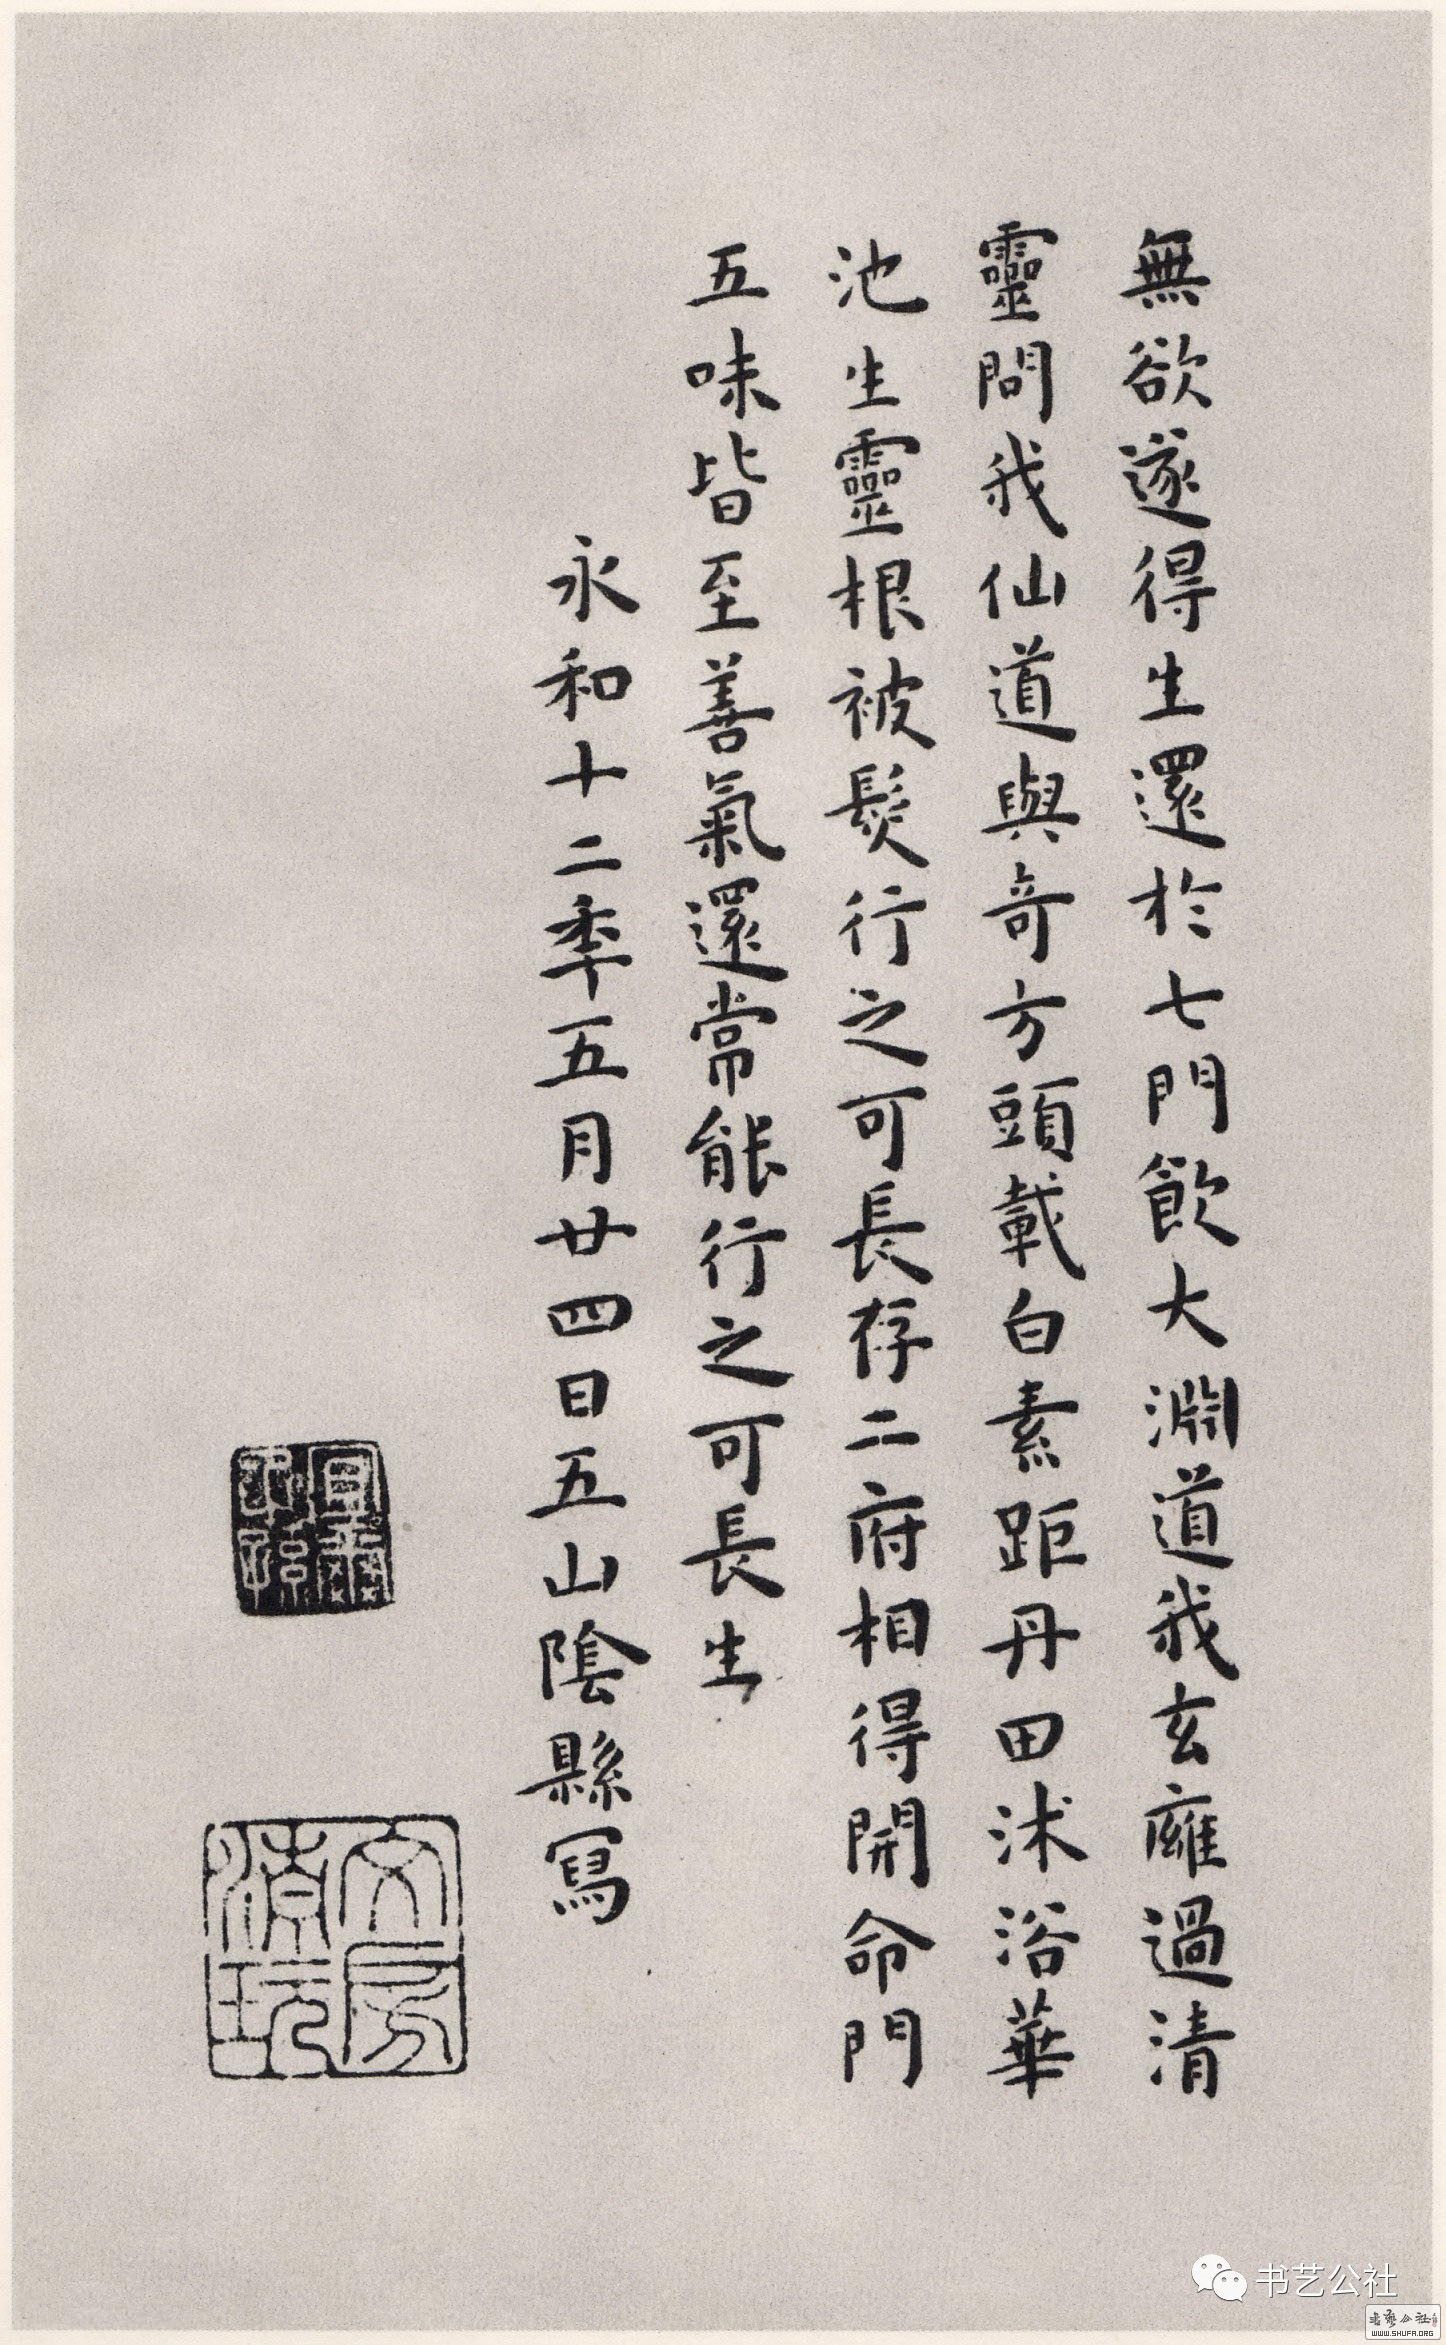 無欲遂得生還於七門飲大淵道我玄廱過清
靈問我仙道與奇方頭載白素距丹田沐浴華
池生靈根被髮行之可長存二府相得開命門
五味皆至善氣還常能行之可長生
永和十二年五月廿四日五山陰縣寫
文房
清玩
书艺公社
书艺公社
WWW.SHUFA.ORG